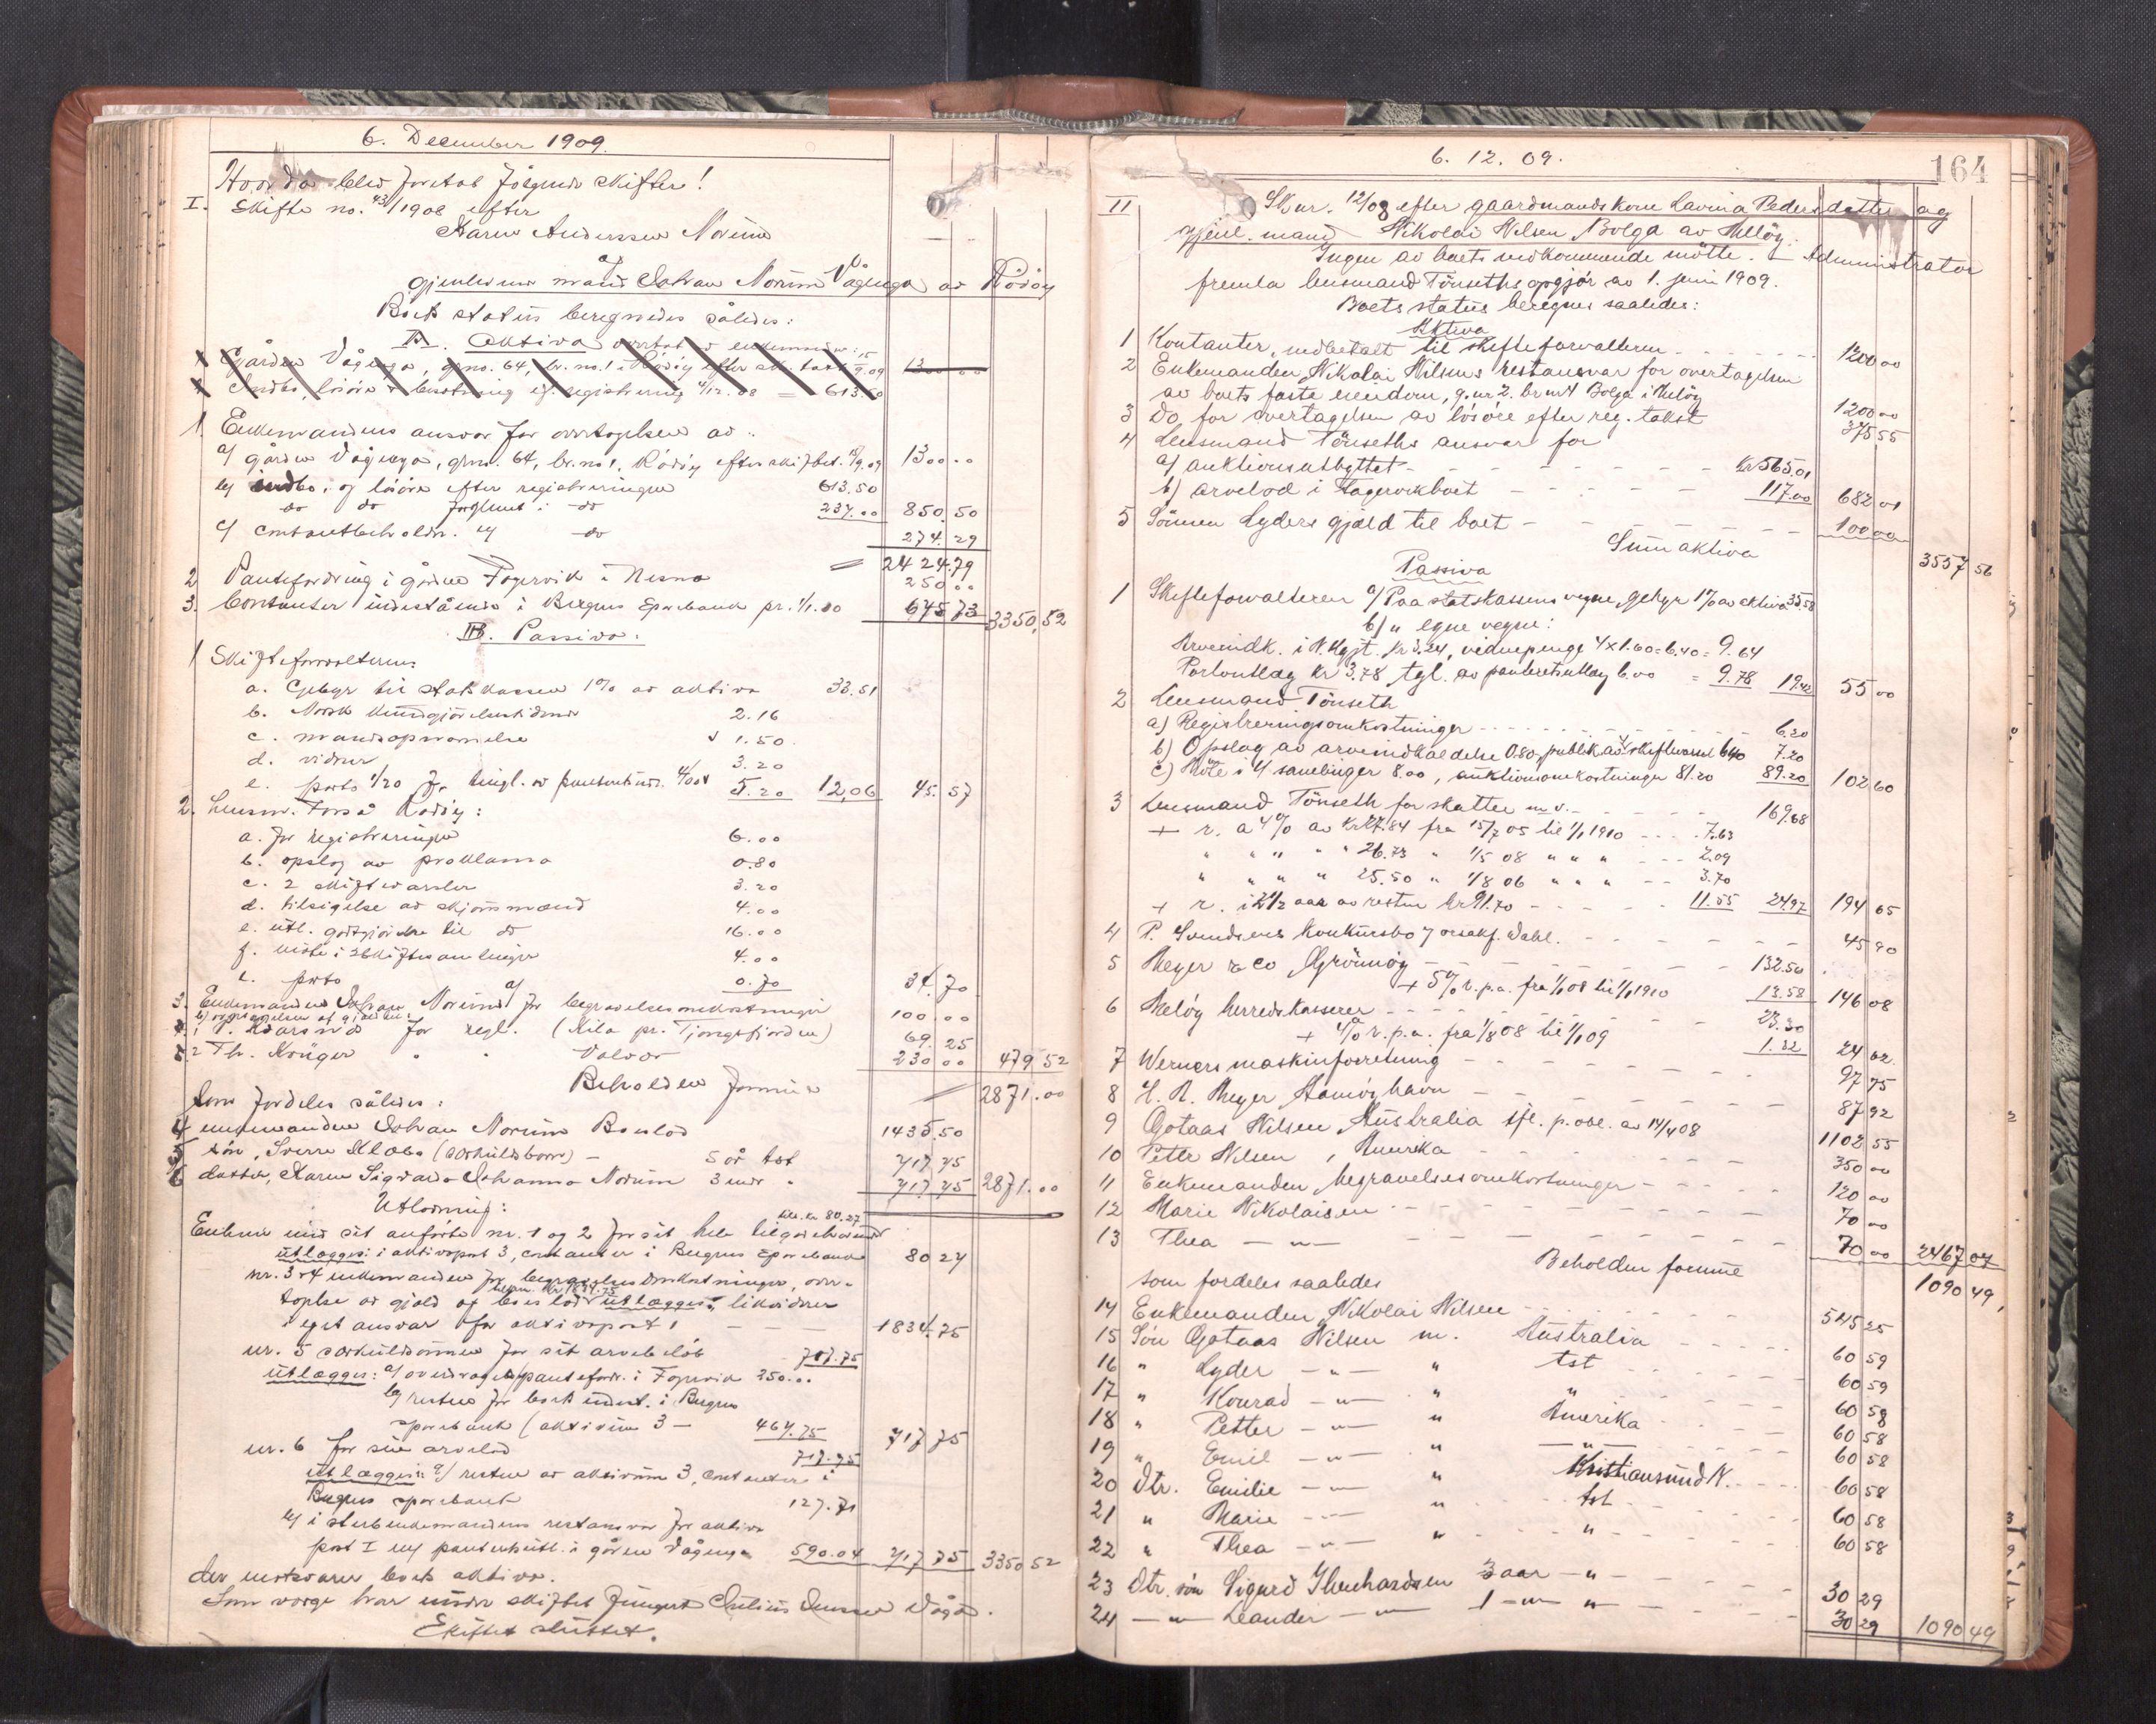 6. December 1909.
Hvor da blev foretat følgende skifter!
I. Skifte no. 43/1908 efter
Karen Anderssen Norum
og
gjenlevende mand Johan Norum Vågenga av Rödöy
Boets status beregnedes således:
A. Aktiva overtat av enkemanden:
1 Gården Vågenga, grno. 64, br.no. 1 i Rödöy efter sk. takst 15/9.09 1300 00
2 Indbo, lösöre & besetning ifl. registrering 4/12.08 = 613.50
1. Enkemandens ansvar for overtagelsen av:
a/ gården Vågenga, grno. 64, br.no 1, Rödöy efter skiftet. 15/9.09 1300..
b/ indbo. og lösöre efter registreringen 613.50
do do do 237.00 850.50
c/ contantbeholdn. efter do 274.29
= 2424.79
2. Pantefordring i gården Fagervik i Nesna 250..
3. Contanter indestående i Bregnes Sparebank pr. 1/1.10 675.73 3350,52
B. Passiva:
1 Skifteforvalteren
a. Gebyr til statskassen 1% av aktiva 33.51
b. Norsk kundgjörelsestidende 2.16
c. mandsopnævnelse 1.50
d. vidner 3.20
e. porto 1/20 for tingl. av panteutlæg. 4/00 5.20 12,06 45.57
2. Lensm. Forså Rödöy:
a. for registreringen 6.00
b. opslag av proklama 0.80
c. 2 skiftevarsler 3.20
d. tilsigelse av skjönsmænd 4.00
e. utl. godtgjörelse til do 16.00
f. möte i 2 skiftesamlinger 4.00
g. porto 0.70 34.70
3. Enkemanden Johan Norum a/ for begravelsesomkostninger 100.00
b/ overtagelsen af gjæld til:
1 P. Kaarsnd for regl. (Kila pr. Tjongsfjorden) 69.25
2 Th. Krüger " " Valvær 230.00 479 52
Beholden formue 2871.00
Som fordeles således:
4 enkemanden Johan Norum Boslod 1435.50
5 sön, Sverre Kløbo (særkuldsbarn) – 5 år tst 717 75
6 datter, Karen Sigvarda Johanna Norum 3 mdr " 717 75 2871.00
Utlodning:
Enhver med sit anförte nr. 1 og 2 for sit hele tilgodehavende tils. kr. 80.27
utlægges: i aktivapost 3, contanter i Bregnes Sparebank 80 27
nr. 3 & 4 enkemanden for begravelsesomkostninger, over-
tagelse av gjæld og boeslod tilsam. kr. 1834.75 utlægges: likviderer
i eget ansvar for aktivapost 1 – – – 1834.75
nr. 5 særkuldsönnen for sit arvebelöb 717.75
utlægges: a/ overdrages pantefordr. i Fagervik 250...
b/ resten for boets indest. i Bregnes
sparebank (aktivum 3 – 467.75 717 75
nr. 6 for sin arvelod 717.75
utlægges: a/ resten av aktivum 3, contanter i
Bregnes sparebank 127.71
b/ i sterbenkemandens restansvar for aktiva
post I mf panterhutl. i gården Vågenga 590.04 717 75 3350 52
der motsvarer boets aktiva.
Som værge har under skiftet fungeret Julius Jenssen Vågå.
Skiftet sluttet.
6. 12. 09.
164
II Sk nr. 12/08 efter gaardmandskone Lavina Pedersdatter og
gjenl. mand Nikolai Nilsen Bolga av Melöy.
Ingen av boets vedkommende mötte. Administrator
fremla lensmand Tönseths opgjör av 1. juni 1909.
Boets status beregnes saaledes:
Aktiva
1 Kontanter, indbetalt til skifteforvalteren 1200 00
2 Enkemanden Nikolai Nilsens restansvar for overtagelsen
av boets faste eiendom, g.nr 2. br nr 4 Bolga i Melöy 1200 00
3 Do for overtagelsen av lösöre efter reg. takst 375 55
4 Lensmand Tönseths ansvar for
a/ auktionsutbyttet – Kr 565.01
b/ arvelod i Fagervikboet – 117.00 682 01
5 Sönnen Lyders gjæld til boet – 100 00
Sum aktiva 3557 56
Passiva
1 Skifteforvalteren a/ Paa statskassens vegne, gebyr 1% av aktiva 35.58
b/ " egne vegne:
Arveindk. i N. Kgjt. Kr 3.24, vidnepenge 4 x 1.60 = 6.40 = 9.64
Portoutlæg Kr 3.78, tgl. av panteretsutlæg 6.00 = 9.78 19.42 55 00
2 Lensmand Tönseth
a) Registreringsomkostninger 6.20
b) Opslag av arveindkaldelse 0.80, publik. av 4 skiftevarsel 6.40 7.20
c) Möte i 4 samlinger 8.00, auktionsomkostninger 81.20 89.20 102 60
3 Lensmand Tönseth for skatter m. v. 169.68
+ r. a 4% av Kr 27.84 fra 15/7 05 til 1/1 1910 7.63
" " " " " 26.73 " 1/5 08 " " " 2.09
" " " " 25.50 " 1/8 06 " " " 3.70
+ r. i 2 1/2 aar av resten kr 91.70 – 11.55 24.97 194 65
4 P. Svendsens konkursbo v/ orsakf. Dahl. – 45 90
5 Meyer & Co Grönnöy – 132.50
+ 5% r. p.a. fra 1/1 08 til 1/1 1910 13.58 146 08
6 Melöy herredskasserer – 23.30
+ 4% r. p.a. fra 1/8 08 til 1/1 09 1.32 24 62
7 Werners maskinforretning – 97 75
8 H. N. Meyer Stamöyhavn – 87 92
9 Gotaas Nilsen Australia ifl. p. obl. av 14/4 08 1102 55
10 Petter Nilsen, Amerika – 350 00
11 Enkemanden, begravelsesomkostninger – 120 00
12 Marie Nikolaisen – 70 00
13 Thea –"– 70 00 2467 07
Beholden formue 1090 49
som fordeles saaledes
14 Enkemanden Nikolai Nilsen 545 25
15 Sön Gotaas Nilsen m. Australia 60 59
16 " Lyder –"– " tst 60 59
17 " Konrad –"– " " 60 58
18 " Petter –"– " Amerika 60 58
19 " Emil –"– " –"– 60 58
20 Dtr. Emilie –"– " Kristiansund N. 60 58
21 " Marie –"– " tst 60 58
22 " Thea –"– " " 60 58
23 Dtr. sön Sigurd 3 aar –"– 30 29
24 –"– Leander –"– 1 –"– " 30 29 1090 49